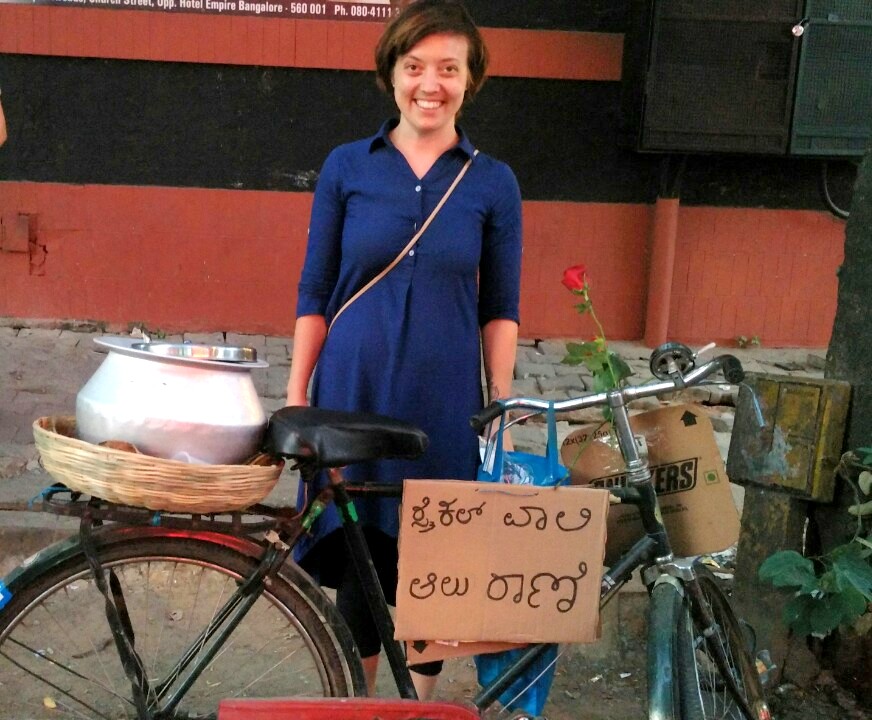 Church Street, Opp. Hotel Empire Bangalore - 560 001 Ph. 080-4111
ಸೈಕಲ್ ವಾಲಿ
ಆಲು ರಾಣಿ